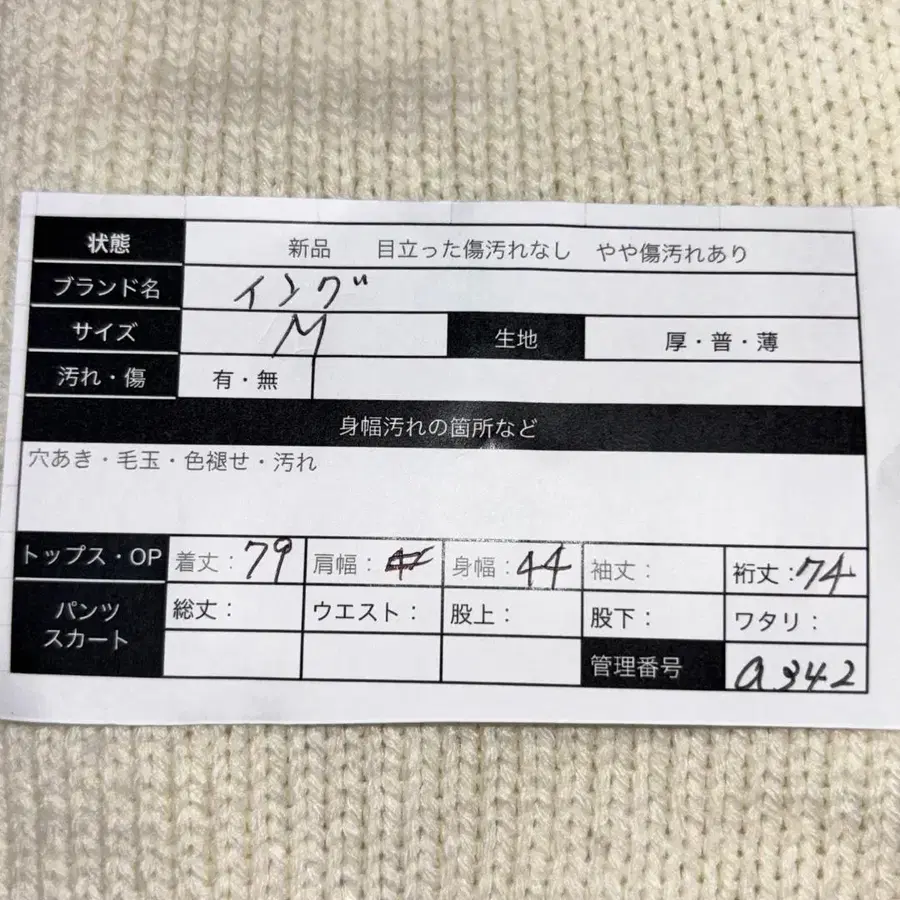 状態 新品 目立った傷汚れなし やや傷汚れあり
ブランド名 イング
サイズ M 生地 厚・普・薄
汚れ・傷 有・無
身幅汚れの箇所など
穴あき・毛玉・色褪せ・汚れ
トップス・OP 着丈：79 肩幅： 身幅：44 袖丈： 裄丈：74
パンツ 総丈： ウエスト： 股上： 股下： ワタリ：
スカート
管理番号 a342